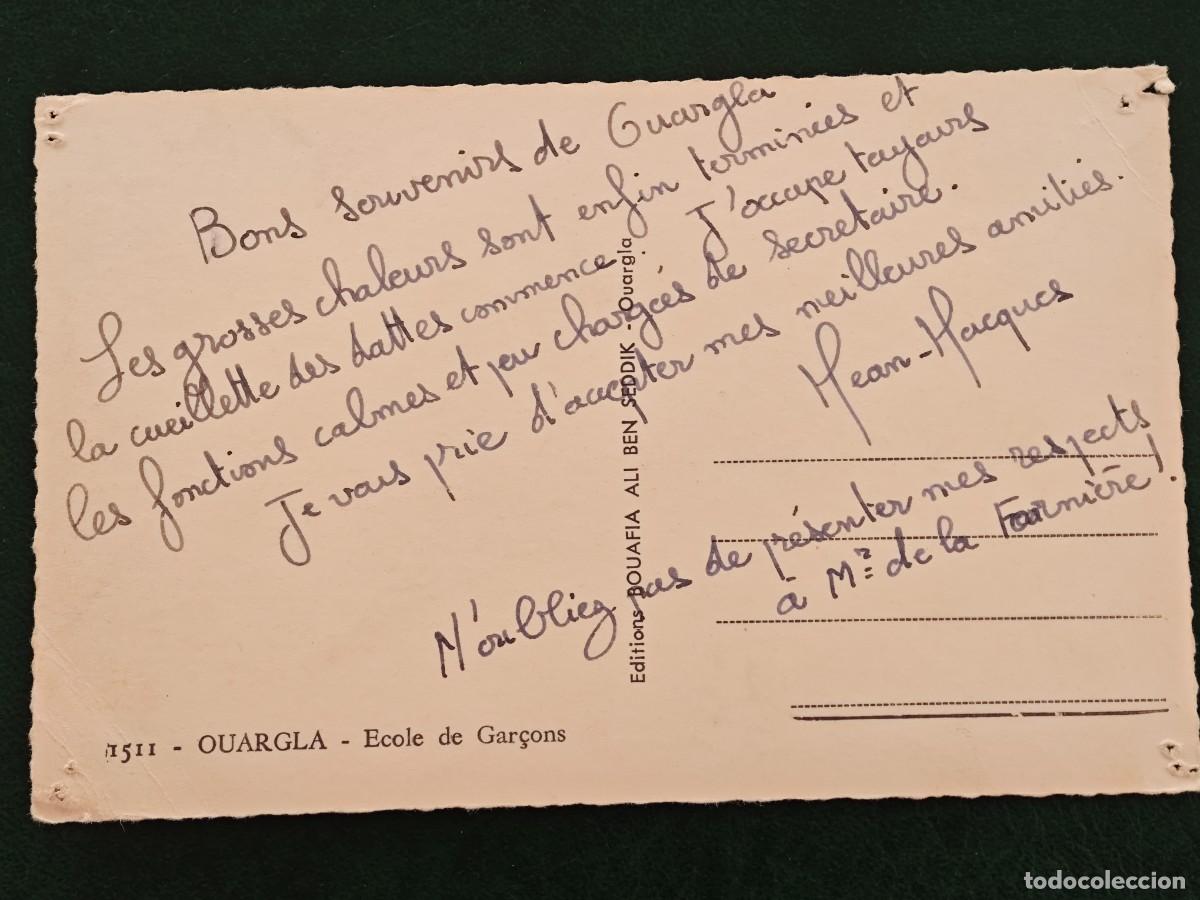 Bons souvenirs de Ouargla
Les grosses chaleurs sont enfin terminées et
la cueillette des dattes commence. J'occupe toujours
les fonctions calmes et peu chargées de secretaire.
Je vous prie d'accepter mes meilleures amitiés.
Jean-Jacques
N'oubliez pas de présenter mes respects
à Mr de la Farnière !
Editions BOUAFIA ALI BEN SEDDIK - Ouargla
1511 - OUARGLA - Ecole de Garçons
todocoleccion